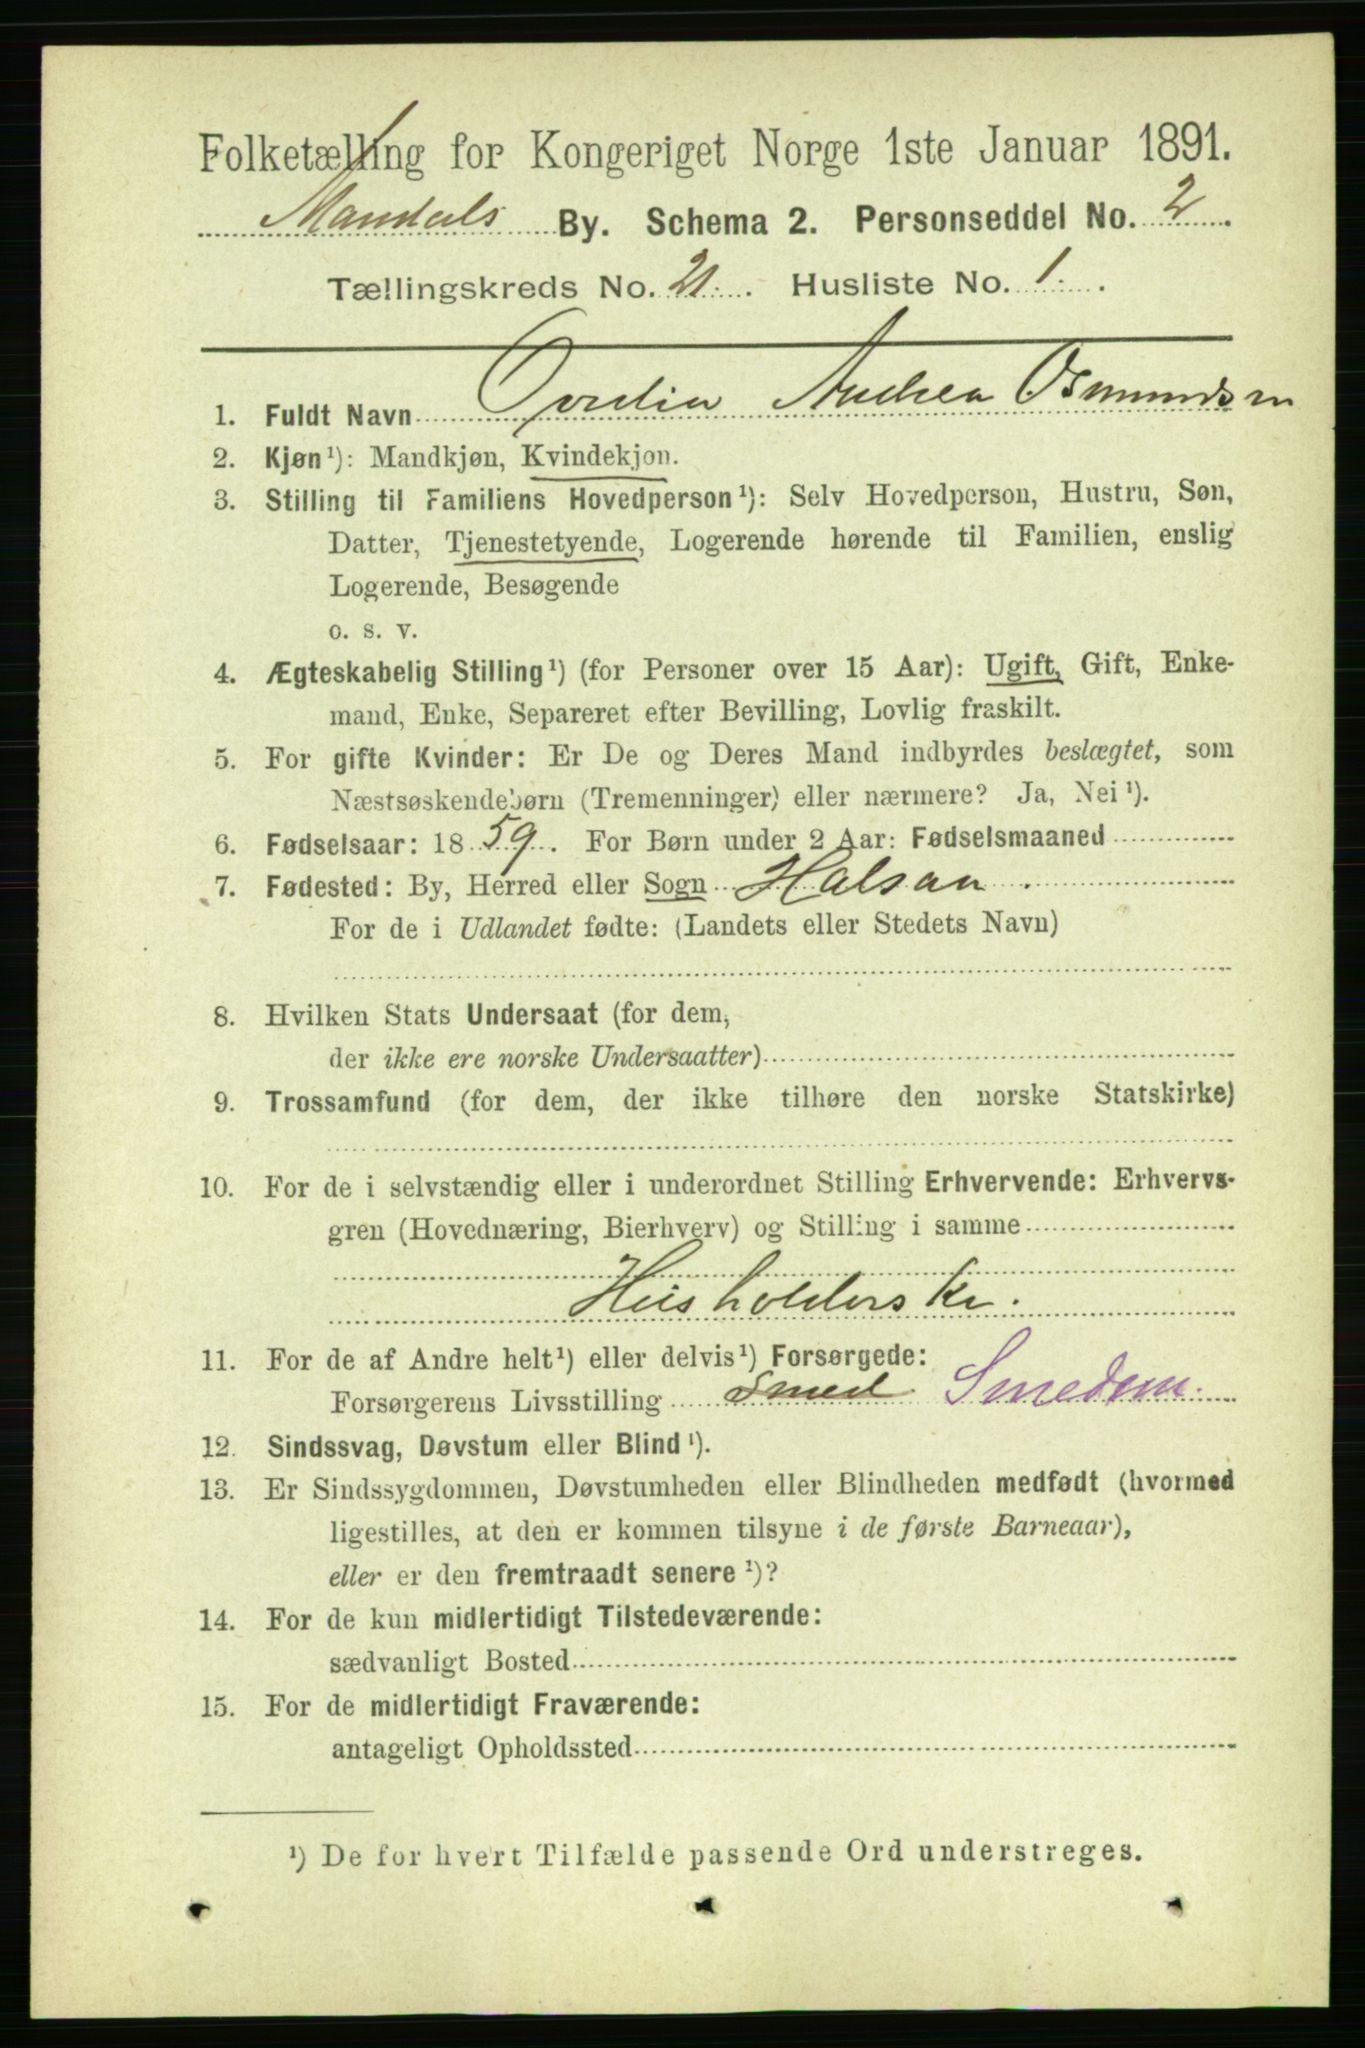 Folketælling for Kongeriget Norge 1ste Januar 1891.
Mandals By. Schema 2. Personseddel No. 2.
Tællingskreds No. 21. Husliste No. 1.
1. Fuldt Navn Andrea Osmundsen
2. Kjøn¹): Mandkjøn, Kvindekjon.
3. Stilling til Familiens Hovedperson¹): Selv Hovedperson, Hustru, Søn,
Datter, Tjenestetyende, Logerende hørende til Familien, enslig
Logerende, Besøgende
o. s. v.
4. Ægteskabelig Stilling¹) (for Personer over 15 Aar): Ugift, Gift, Enke-
mand, Enke, Separeret efter Bevilling, Lovlig fraskilt.
5. For gifte Kvinder: Er De og Deres Mand indbyrdes beslægtet, som
Næstsøskendebørn (Tremenninger) eller nærmere? Ja, Nei¹).
6. Fødselsaar: 1859. For Børn under 2 Aar: Fødselsmaaned
7. Fødested: By, Herred eller Sogn Halsaa.
For de i Udlandet fødte: (Landets eller Stedets Navn)
8. Hvilken Stats Undersaat (for dem,
der ikke ere norske Undersaatter)
9. Trossamfund (for dem, der ikke tilhøre den norske Statskirke)
10. For de i selvstændig eller i underordnet Stilling Erhvervende: Erhvervs-
gren (Hovednæring, Bierhverv) og Stilling i samme
Husholderske.
11. For de af Andre helt¹) eller delvis¹) Forsørgede:
Forsørgerens Livsstilling Smed
12. Sindssvag, Døvstum eller Blind¹).
13. Er Sindssygdommen, Døvstumheden eller Blindheden medfødt (hvormed
ligestilles, at den er kommen tilsyne i de første Barneaar),
eller er den fremtraadt senere¹)?
14. For de kun midlertidigt Tilstedeværende:
sædvanligt Bosted
15. For de midlertidigt Fraværende:
antageligt Opholdssted
¹) De for hvert Tilfælde passende Ord understreges.